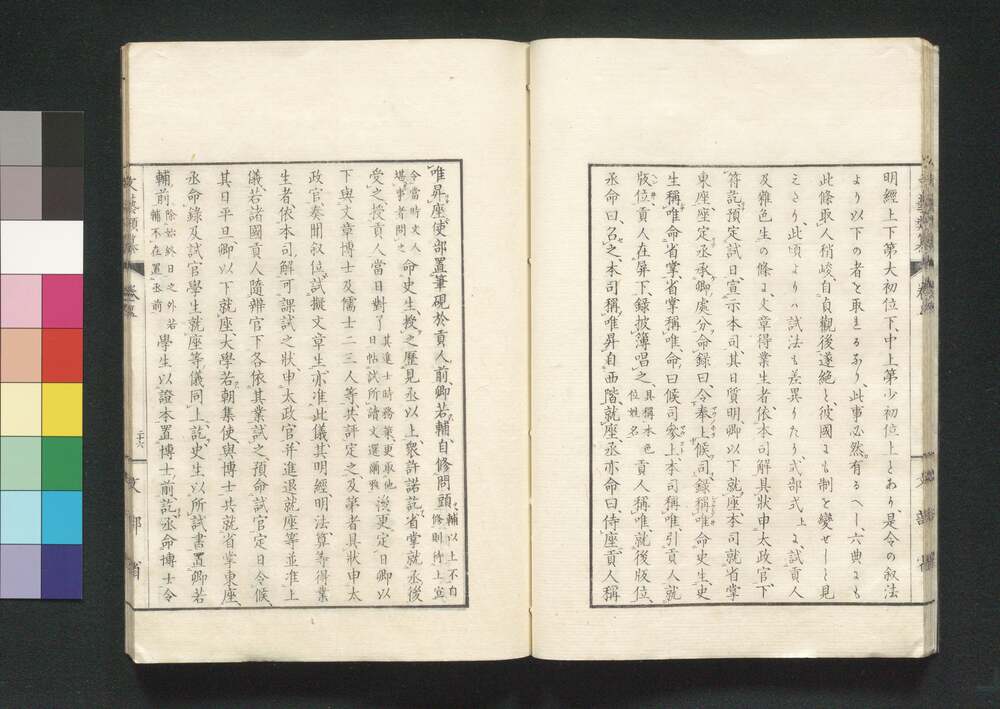 明經上下第大初位下、中上第少初位上とあり、是令の叙法
より以下の者と取まるあり、此事必然有るへし、六典にも
此條取人稍峻、自貞觀後遂絶と、彼國にも制と變せしと見
えさり、此頃よりハ試法も差異りたり、式部式上に試貢人
及雜色生の條に、文章得業生者、依本司解、具狀申太政官、下
符訖、預定試日、宣示本司、其日質明卿以下就座、本司就省掌
東座、座定丞承卿處分、命録曰、令奉上候司、録稱唯、命史生、史
生稱唯、命省掌、省掌稱唯、命曰、候司參上、本司稱唯、引貢人就
版位、貢人在屏下、録披簿唱之、具稱本色位姓名貢人稱唯、就後版位、
丞命曰、召之、本司稱唯、昇自西階、就座、丞亦命曰、侍座、貢人稱
唯昇座、使部置筆硯於貢人前、卿若輔、自修問頭、輔以上不自修、則待上宣
令當時文人堪事者問之命史生、授之歷見丞以上、衆許諾訖、省掌就丞後
受之、授貢人、當日對了、其進士時務策更承他日帖試所讀文選爾雅後更定日、卿以
下與文章博士及儒士二三人等共評定之、及第者具狀申太
政官、奏聞叙位、試擬文章生、亦准此儀、其明經明法算等得業
生者、依本司解可課試之狀、申太政官、并進退就座等並准上
儀、若諸國貢人隨辨官下、各依其業試之、預命試官定日令候、
其日平旦卿以下就座、大學若朝集使與博士共就省掌東座、
丞命錄及試官學生就座等儀同上訖、史生以所試書置卿若
輔前、除始終日之外、若輔不在置丞前學生以證本置博士前訖、丞命博士令
二十六
文部省